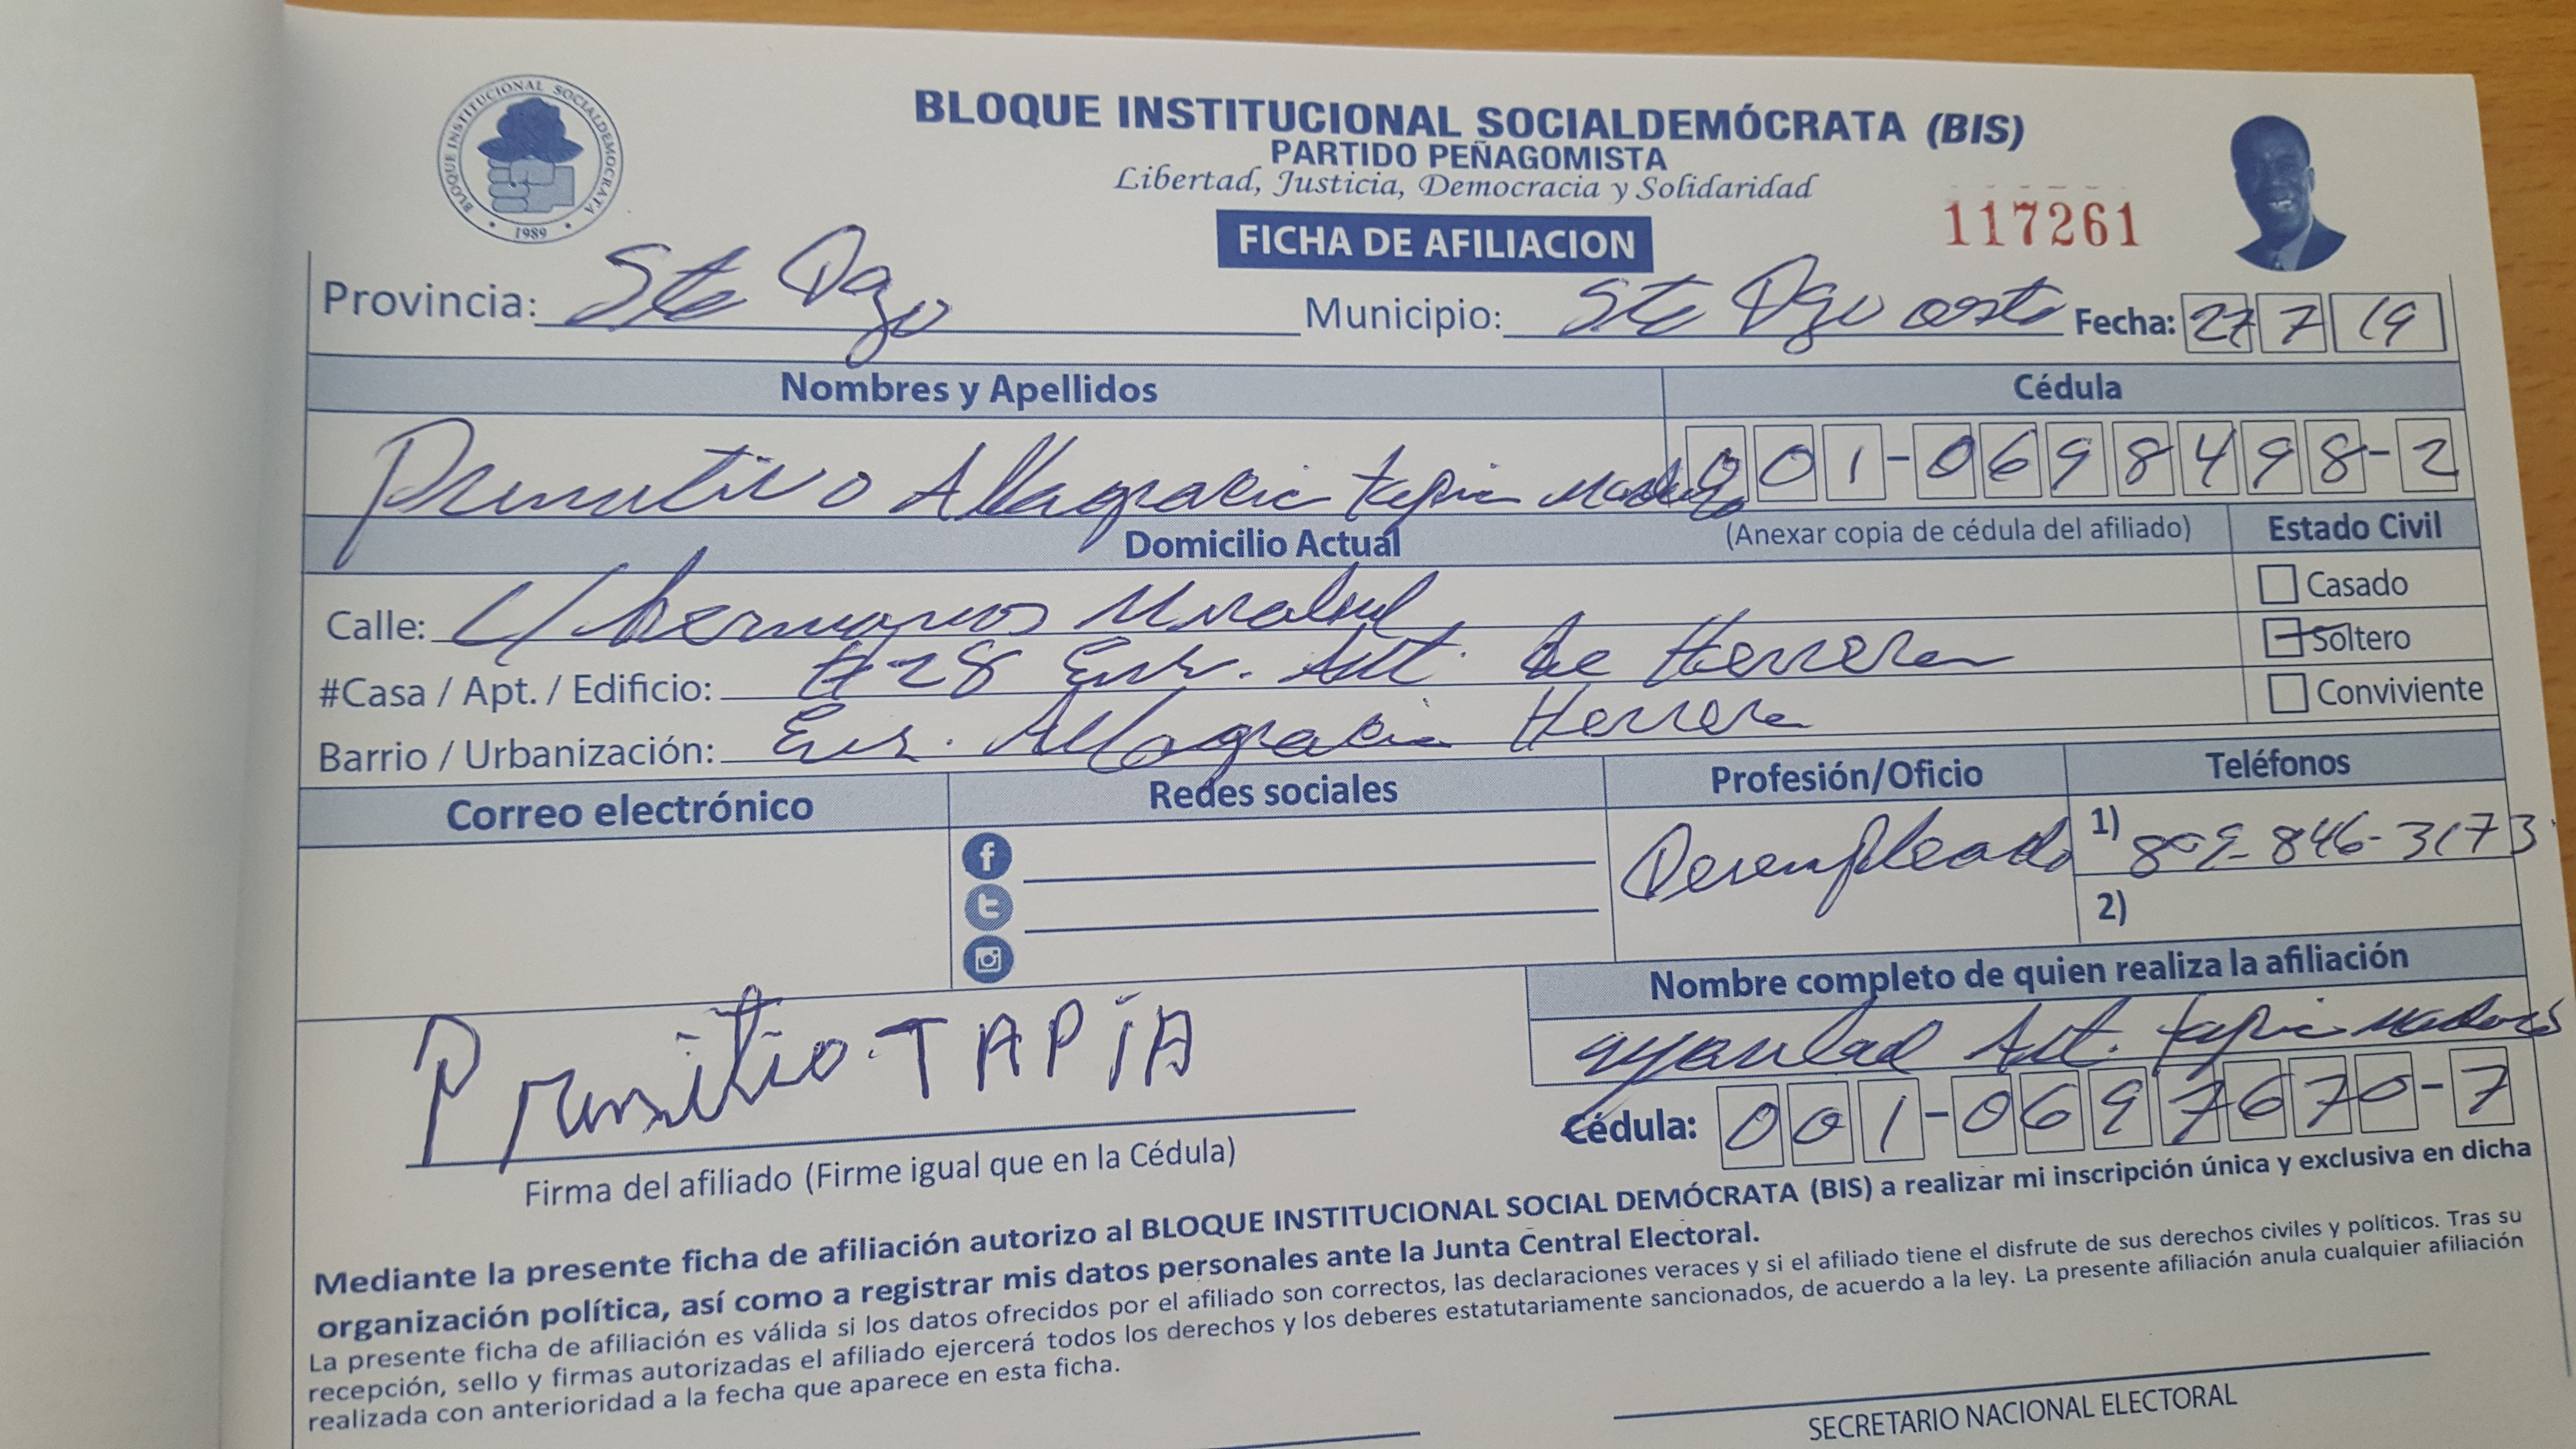 BLOQUE INSTITUCIONAL SOCIALDEMOCRATA
1989
BLOQUE INSTITUCIONAL SOCIALDEMÓCRATA (BIS)
PARTIDO PEÑAGOMISTA
Libertad, Justicia, Democracia y Solidaridad
FICHA DE AFILIACION
117261
Provincia: Sto Dgo Municipio: Sto Dgo oeste Fecha: 27 7 19
Nombres y Apellidos Cédula
Primitivo Altagracia tapia 001-0698498-2
Domicilio Actual (Anexar copia de cédula del afiliado) Estado Civil
Casado
Calle: C/ hermanas Mirabal
Soltero
#Casa / Apt. / Edificio: #28 Ens. Alt. de Herrera
Conviviente
Barrio / Urbanización: Ens. Altagracia Herrera
Correo electrónico Redes sociales Profesión/Oficio Teléfonos
Desempleado 1) 809-846-3173
2)
Nombre completo de quien realiza la afiliación
Alt. tapia
Primitio TAPIA
Cédula: 001-0697670-7
Firma del afiliado (Firme igual que en la Cédula)
Mediante la presente ficha de afiliación autorizo al BLOQUE INSTITUCIONAL SOCIAL DEMÓCRATA (BIS) a realizar mi inscripción única y exclusiva en dicha
organización política, así como a registrar mis datos personales ante la Junta Central Electoral.
La presente ficha de afiliación es válida si los datos ofrecidos por el afiliado son correctos, las declaraciones veraces y si el afiliado tiene el disfrute de sus derechos civiles y políticos. Tras su
recepción, sello y firmas autorizadas el afiliado ejercerá todos los derechos y los deberes estatutariamente sancionados, de acuerdo a la ley. La presente afiliación anula cualquier afiliación
realizada con anterioridad a la fecha que aparece en esta ficha.
SECRETARIO NACIONAL ELECTORAL